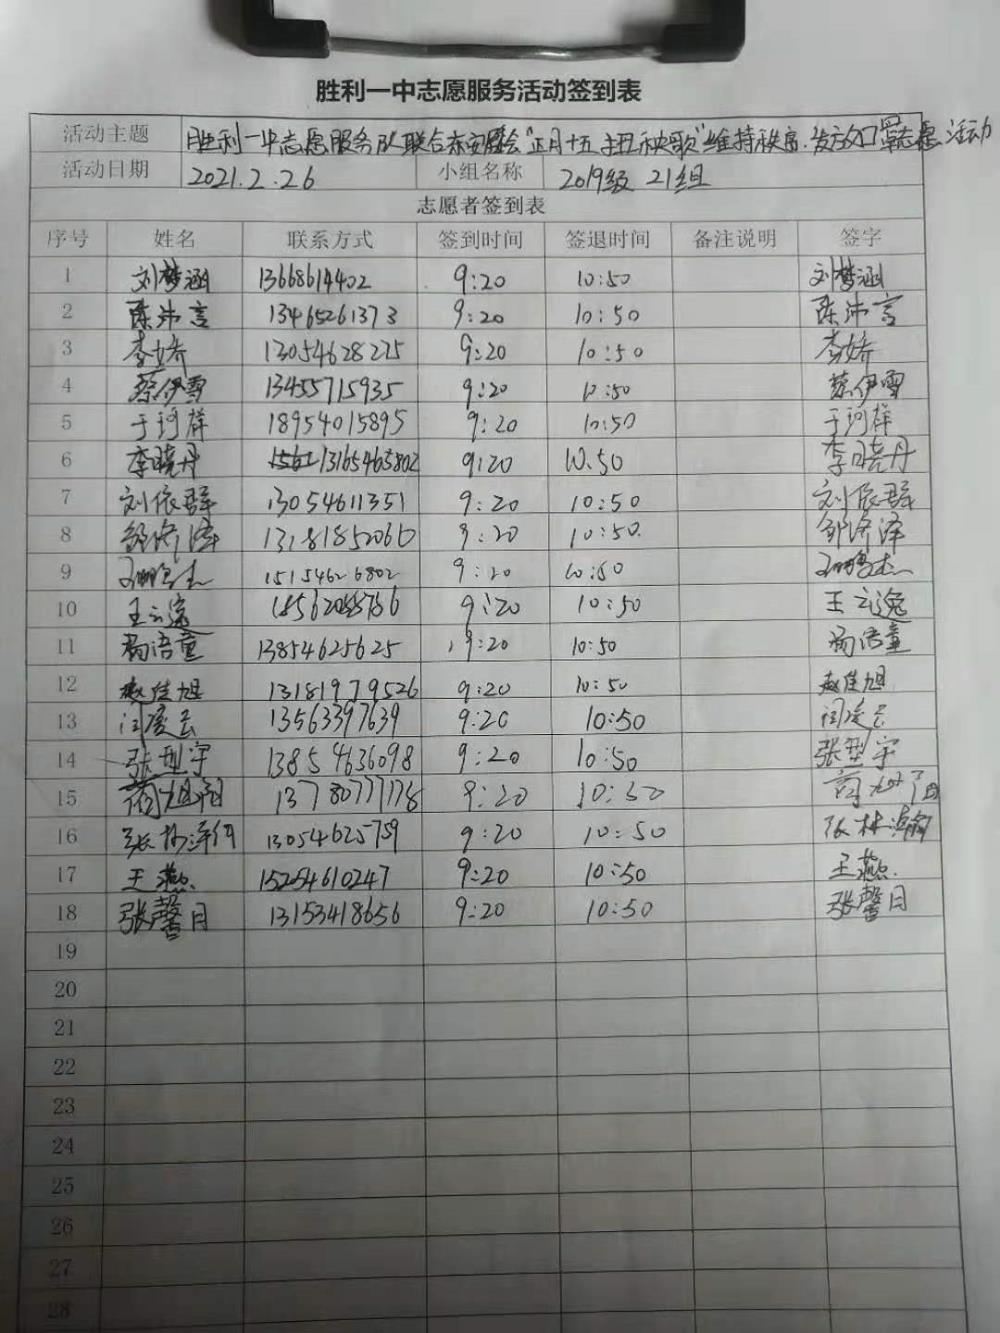 胜利一中志愿服务活动签到表
活动主题 胜利一中志愿服务队联合 "正月十五 扭秧歌"维持秩序.发放口罩志愿活动
活动日期 2021.2.26 小组名称 2019级 21组
志愿者签到表
序号 姓名 联系方式 签到时间 签退时间 备注说明 签字
1 刘梦涵 13668614402 9:20 10:50 刘梦涵
2 陈沛言 13465261373 9:20 10:50 陈沛言
3 李娇 13054628225 9:20 10:50 李娇
4 蔡伊雪 13455715935 9:20 10:50 蔡伊雪
5 于珂祥 18954015895 9:20 10:50 于珂祥
6 李晓丹 13165465802 9:20 10.50 李晓丹
7 刘依群 13054611351 9:20 10:50 刘依群
8 邹济泽 13181852060 9:20 10:50. 邹济泽
9 15154626802 9:20 10:50
10 王云逸 9:20 10:50 王云逸
11 杨语童 13854625625 9:20 10:50 杨语童
12 赵佳旭 13181979526 9:20 10:50 赵佳旭
13 闫凌云 13563397639 9:20 10:50 闫凌云
14 张型宇 13854636098 9:20 10:50 张型宇
15 商旭阳 13780777178 9:20 10:50 商旭阳
16 13054625759 9:20 10:50
17 王燕. 15254610247 9:20 10:50 王燕.
18 张馨月 13153418656 9:20 10:50 张馨月
19
20
21
22
23
24
25
26
27
28